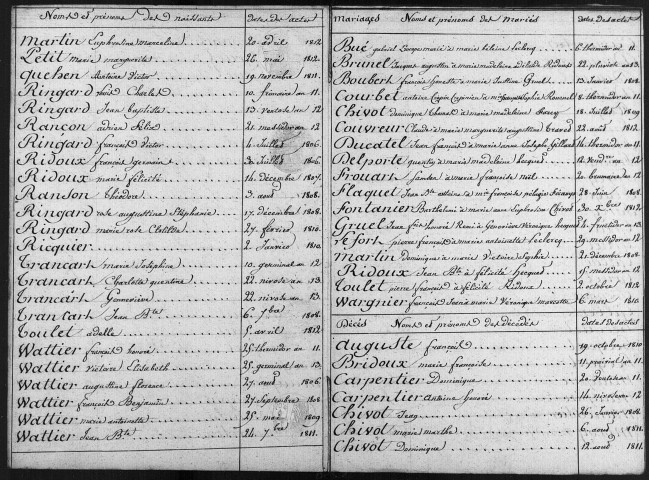 Noms et prénoms des naissants dates des actes
Martin Euphrosine marceline 20 avril 1812
Petit Marie marguerite 26 mai 1812
Quehen Antoine Victor 19 novembre 1811
Ringard Charles 10 frimaire an 11
Ringard Jean baptiste 13 ventose an 12
Rançon adrien Félix 21 messidor an 12
Ringard françois Victor 4 Juillet 1806
Ridoux françois germain Juillet 1806
Ridoux marie félicité 14 décembre 1807
Ranson théodore 3 aoud 1808
Ringard rose augustine Stéphanie 17 décembre 1808
Ringard marie rose Clotilde 27 février 1810
Ricquier 2 Janvier 1810
Trancart marie Josephine 10 germinal an 12
Trancart Charlotte 22 nivose an 13
Trancart Genevieve 22 nivose an 13
Trancart Jean Bte 6 7bre 1808
Toulet adelle 5 avril 1812
Wattier françois honoré 25 thermidor an 11
Wattier victoire Elisabeth 25 germinal an 13
Wattier augustine florence 27 aoud 1806
Wattier françois Benjamin 27 Septembre 1808
Wattier marie antoinette 25 mai 1809
Wattier Jean Bte 24 7bre 1811
mariages Noms et prénoms des mariés dates des actes
Bué à marie 6 thermidor an 11
Brunel Jacques augustin à marie madeleine 22 pluviose an
Boubert françois à marie Justine Gruel 13 Janvier 1808
Courbet antoine à 8 thermidor an 11
Chivot dominique à marie madeleine 18 Juillet 1809
Couvreur Claude à marie marguerite augustine 22 aoud 1812
Ducatel Jean françois à marie anne Josephe 14 thermidor an 11
Delporte quentin à marie madeleine Jacques 12 an 12
Frouart à marie françoise 20 brumaire an 12
Flaquet Jean Bte antoine à françoise pélagie 28 Juin 1808
Fontanier Barthelemi à marie anne Euphrosine Chivot 30 Xbre 1812
Gruel Jean à Genevieve Véronique hecquet 4 fructidor an 13
Lefort pierre françois à marie antoinette Leclercq 29 messidor an 12
Martin Dominique à marie Victoire Sophie 21 décembre 1808
Ridoux Jean Bte à félicité hecquet 15 messidor an 12
Toulet pierre françois à félicité Ridoux 2 octobre 1812
Wargnier françois Jean à marie Véronique 6 mars 1810
Décés Noms et prénoms des décédés Dates des actes
Auguste françois 19 octobre 1810
Bridoux marie françoise 11 prairial an 11
Carpentier Dominique 20 Ventose an 11
Carpentier antoine honoré 14 nivose an 12
Chivot Jean 26 Janvier 1806
Chivot marie marthe 6 aoud 1811
Chivot Dominique 12 aoud 1811